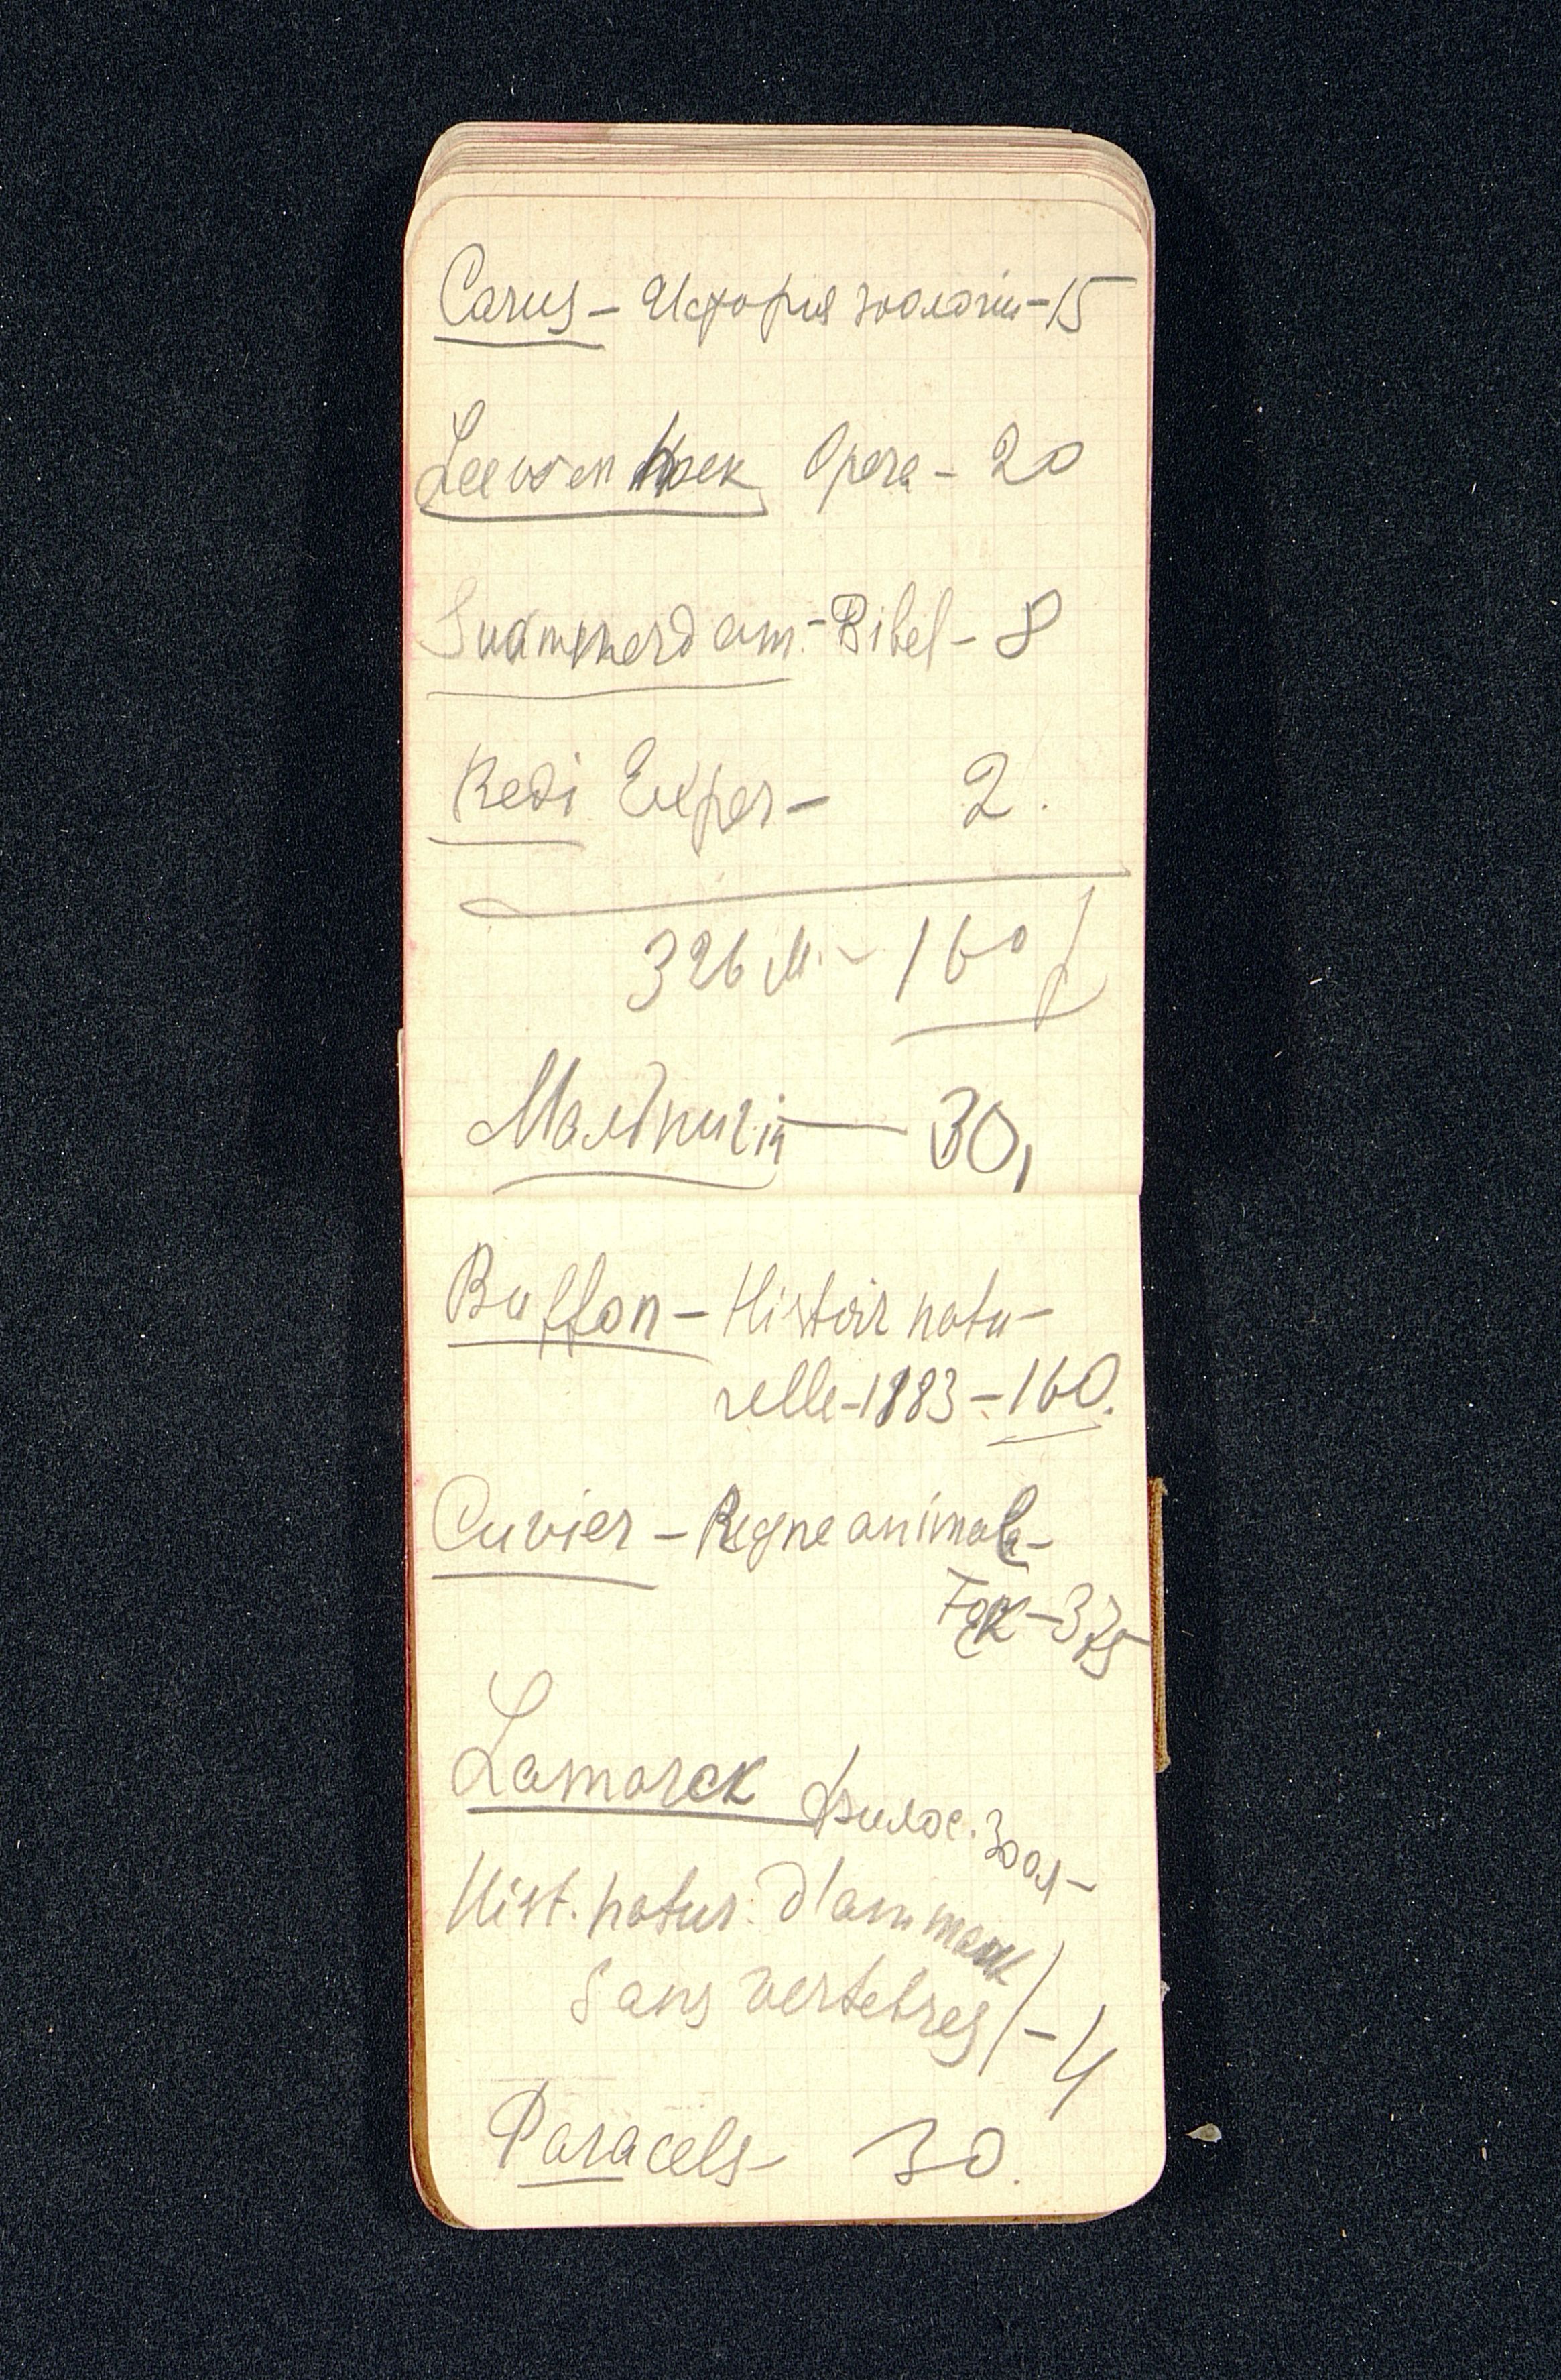 Carus – Исторія зоологіи – 15
Leewenhoek Opera – 20
Suammerdam. – Bibel – 8
Redi Exper – 2.
326 M. – 160 f
Мальпигій — 30,
Buffon – Histoir natu-
relle – 1883 – 160.
Cuvier – Regne animale –
– 375
Lamarck Филос. Зоол –
Hist. natur. d'
Sans vertebres / – 4
Paracels – 30.